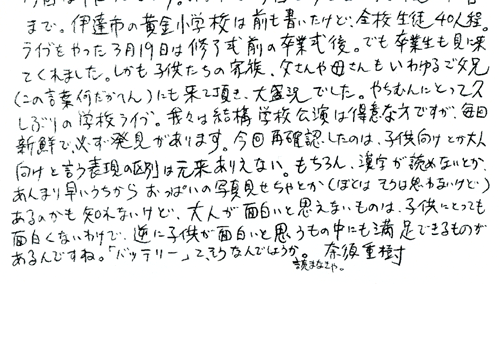 まで。伊達市の黄金小学校は前も書いたけど、全校生徒40人程。
ライブをやった3月19日は修了式前の卒業式後。でも卒業生も見に来
てくれました。しかも子供たちの家族、父さんや母さんもいわゆるご父兄
(この言葉何だかへん)にも来て頂き、大盛況でした。やちむんにとって久
しぶりの学校ライブ。我々は結構学校公演は得意な方ですが、毎回
新鮮で必ず発見があります。今回再確認したのは、子供向けとか大人
向けと言う表現の区別は元来ありえない。もちろん、漢字が読めないとか、
あんまり早いうちから おっぱいの写真見せちゃとか(ぼくは そうは思わないけど)
あるのかも知れないけど、大人が面白いと思えないものは、子供にとっても
面白くないわけで、逆に子供が面白いと思うもの中にも満足できるものが
あるんですね。「バッテリー」て、そうなんでしょうか。 奈須重樹
読まなきゃ。